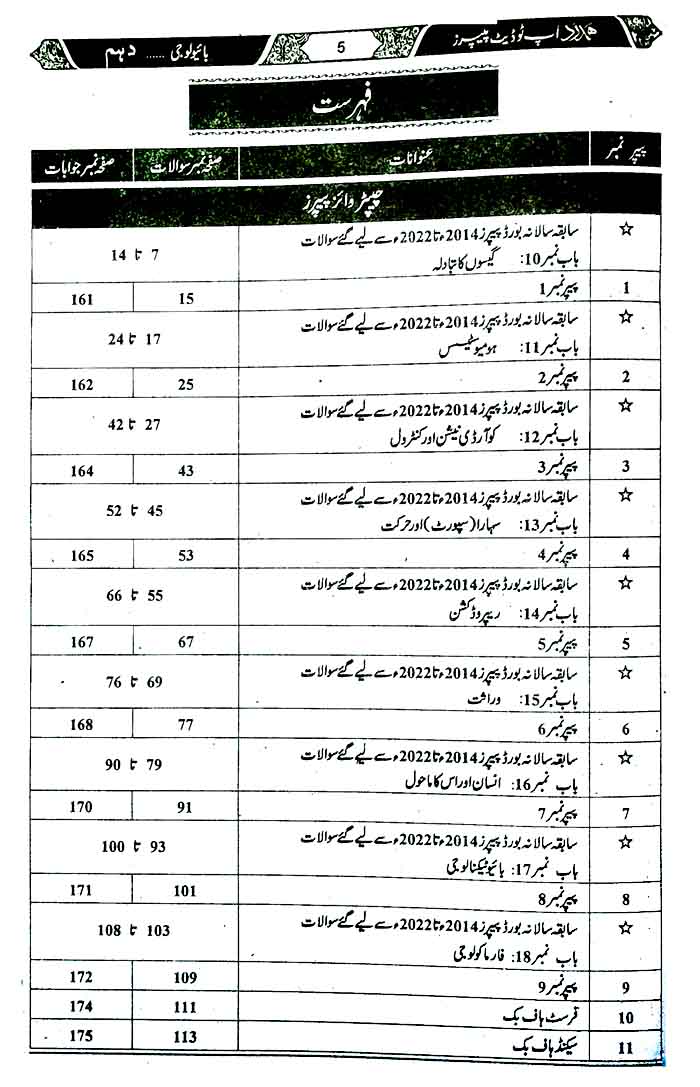 ہمدرد اپ ٹو ڈیٹ پیپرز
5
بائیولوجی ...... دہم
فہرست
پیپر نمبر عنوانات صفحہ نمبر سوالات صفحہ نمبر جوابات
چیپٹر وائز پیپرز
☆ سابقہ سالانہ بورڈ پیپرز 2014ء تا 2022ء سے لیے گئے سوالات
باب نمبر 10: گیسوں کا تبادلہ 7 تا 14
1 پیپر نمبر 1 15 161
☆ سابقہ سالانہ بورڈ پیپرز 2014ء تا 2022ء سے لیے گئے سوالات
باب نمبر 11: ہومیوسٹیسس 17 تا 24
2 پیپر نمبر 2 25 162
☆ سابقہ سالانہ بورڈ پیپرز 2014ء تا 2022ء سے لیے گئے سوالات
باب نمبر 12: کوآرڈی نیشن اور کنٹرول 27 تا 42
3 پیپر نمبر 3 43 164
☆ سابقہ سالانہ بورڈ پیپرز 2014ء تا 2022ء سے لیے گئے سوالات
باب نمبر 13: سہارا (سپورٹ) اور حرکت 45 تا 52
4 پیپر نمبر 4 53 165
☆ سابقہ سالانہ بورڈ پیپرز 2014ء تا 2022ء سے لیے گئے سوالات
باب نمبر 14: ریپروڈکشن 55 تا 66
5 پیپر نمبر 5 67 167
☆ سابقہ سالانہ بورڈ پیپرز 2014ء تا 2022ء سے لیے گئے سوالات
باب نمبر 15: وراثت 69 تا 76
6 پیپر نمبر 6 77 168
☆ سابقہ سالانہ بورڈ پیپرز 2014ء تا 2022ء سے لیے گئے سوالات
باب نمبر 16: انسان اور اس کا ماحول 79 تا 90
7 پیپر نمبر 7 91 170
☆ سابقہ سالانہ بورڈ پیپرز 2014ء تا 2022ء سے لیے گئے سوالات
باب نمبر 17: بائیوٹیکنالوجی 93 تا 100
8 پیپر نمبر 8 101 171
☆ سابقہ سالانہ بورڈ پیپرز 2014ء تا 2022ء سے لیے گئے سوالات
باب نمبر 18: فارماکولوجی 103 تا 108
9 پیپر نمبر 9 109 172
10 فرسٹ ہاف بک 111 174
11 سیکنڈ ہاف بک 113 175